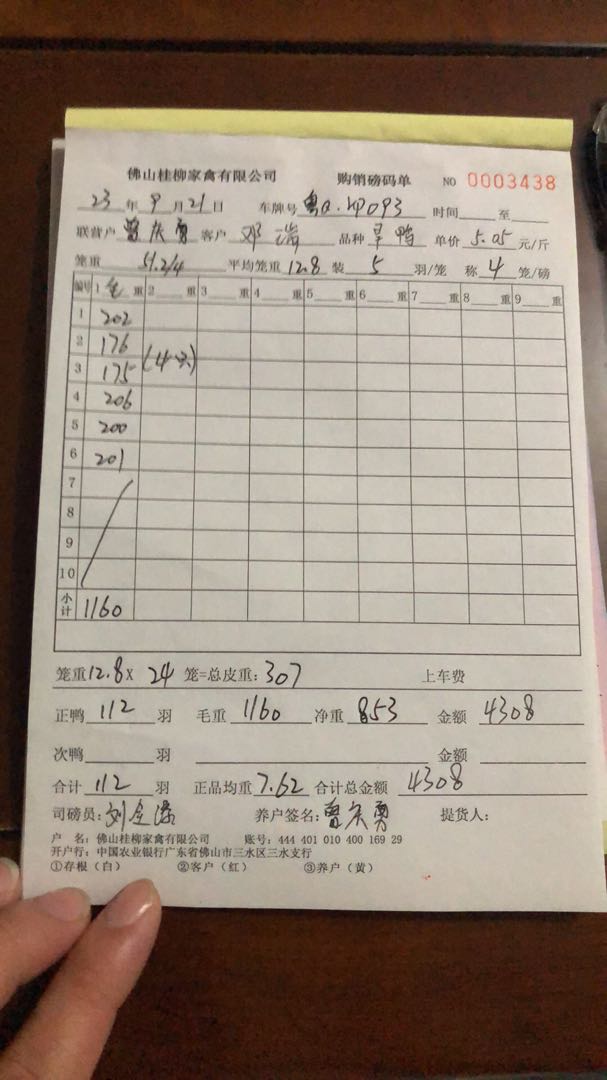 佛山桂柳家禽有限公司 购销磅码单 NO 0003438
23年9月21日 车牌号 粤 093 时间 至
联营户 曾庆勇 客户 邓瑞 品种 旱鸭 单价 5.05 元/斤
笼重 51.2/4 平均笼重 12.8 装 5 羽/笼 称 4 笼/磅
编号 1 毛 重 2 重 3 重 4 重 5 重 6 重 7 重 8 重 9 重
1 202
2 176
3 175 (4只)
4 206
5 200
6 201
7
8
9
10
小计 1160
笼重 12.8 X 24 笼=总皮重: 307 上车费
正鸭 112 羽 毛重 1160 净重 853 金额 4308
次鸭 羽 金额
合计 112 羽 正品均重 7.62 合计总金额 4308
司磅员: 刘 养户签名: 曾庆勇 提货人:
户 名: 佛山桂柳家禽有限公司 账号: 444 401 010 400 169 29
开户行: 中国农业银行广东省佛山市三水区三水支行
①存根（白） ②客户（红） ③养户（黄）